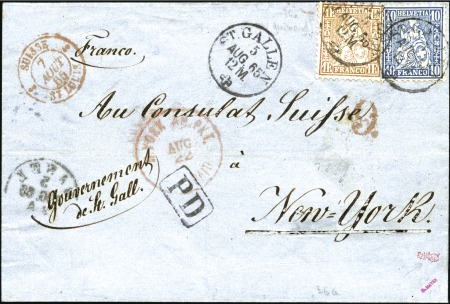 Franco.
SUISSE
7
AOUT
ST. GALLEN
5
AUG 65
12 M.
HELVETIA
FRANCO
HELVETIA
10
10
FRANCO
Au Consulat Suisse
à
New-York.
AUG
22
PAID
PD
Gouvernement
de St. Gall.